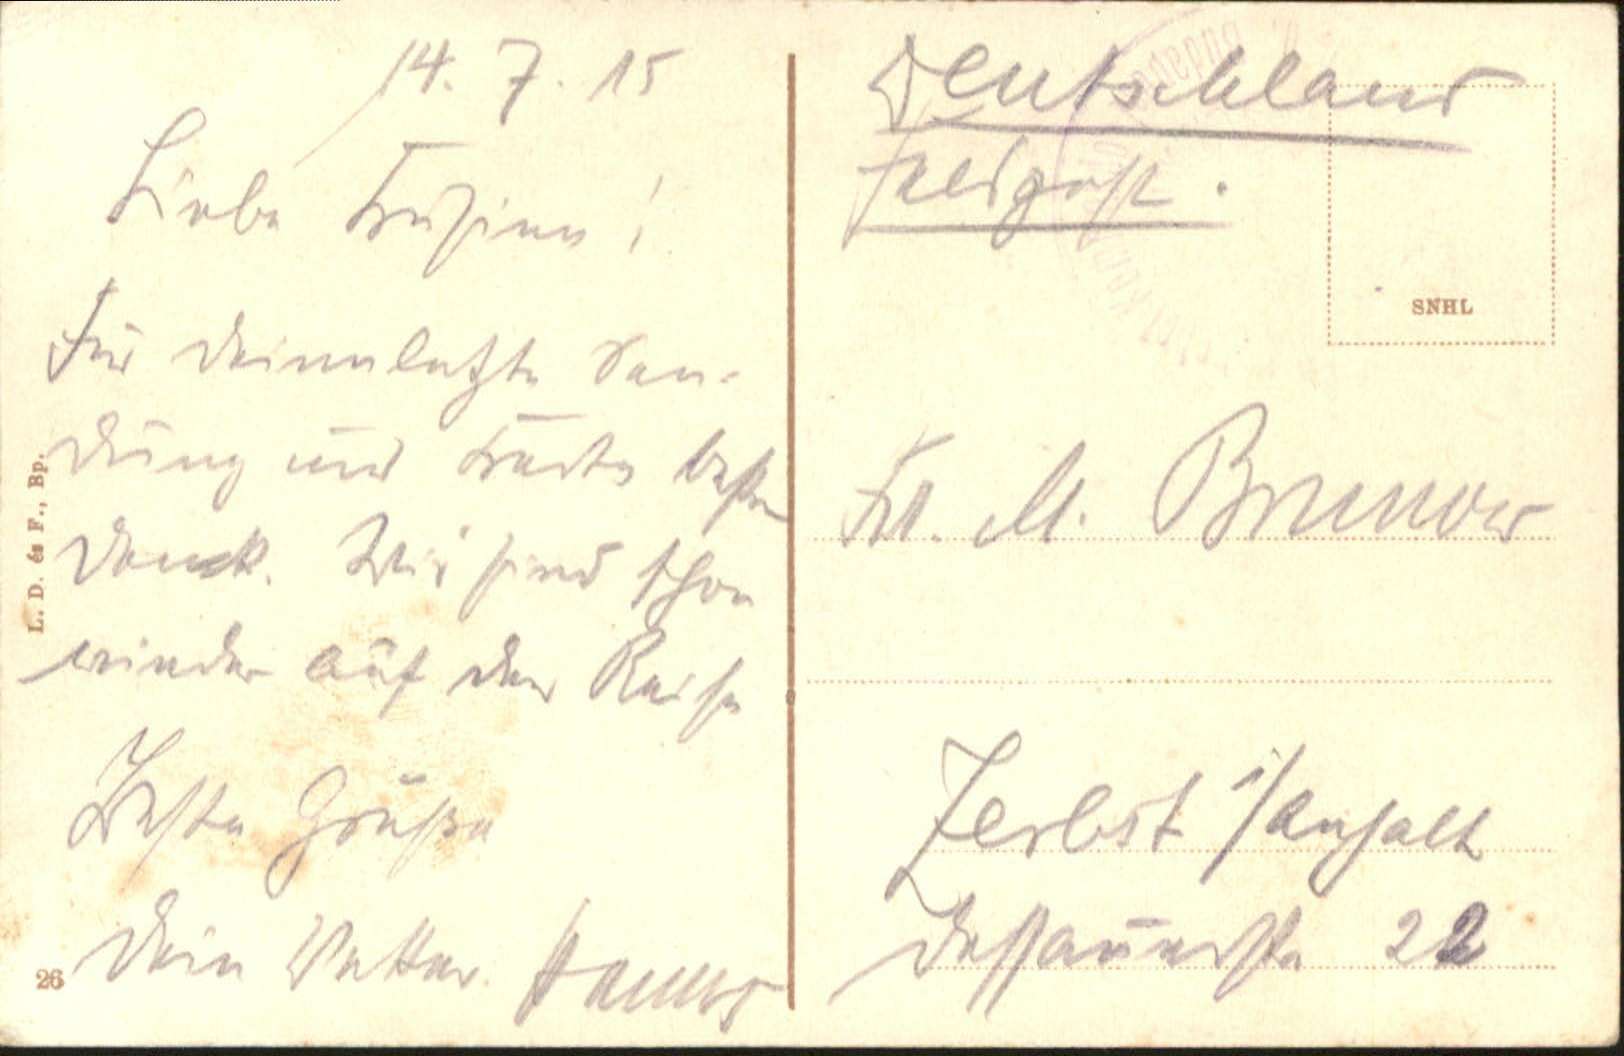 14. 7. 15
Liebe Kusine!
Für deine letzte Sen-
dung und Karte besten
Dank. Wir sind schon
wieder auf der Reise
Beste Grüße
Dein Vetter Hanns
L. D. és F., Bp.
26
Deutschland
Feldpost.
SNHL
Frl. M. Brunow
Zerbst i/Anhalt
Dessauerstr. 22